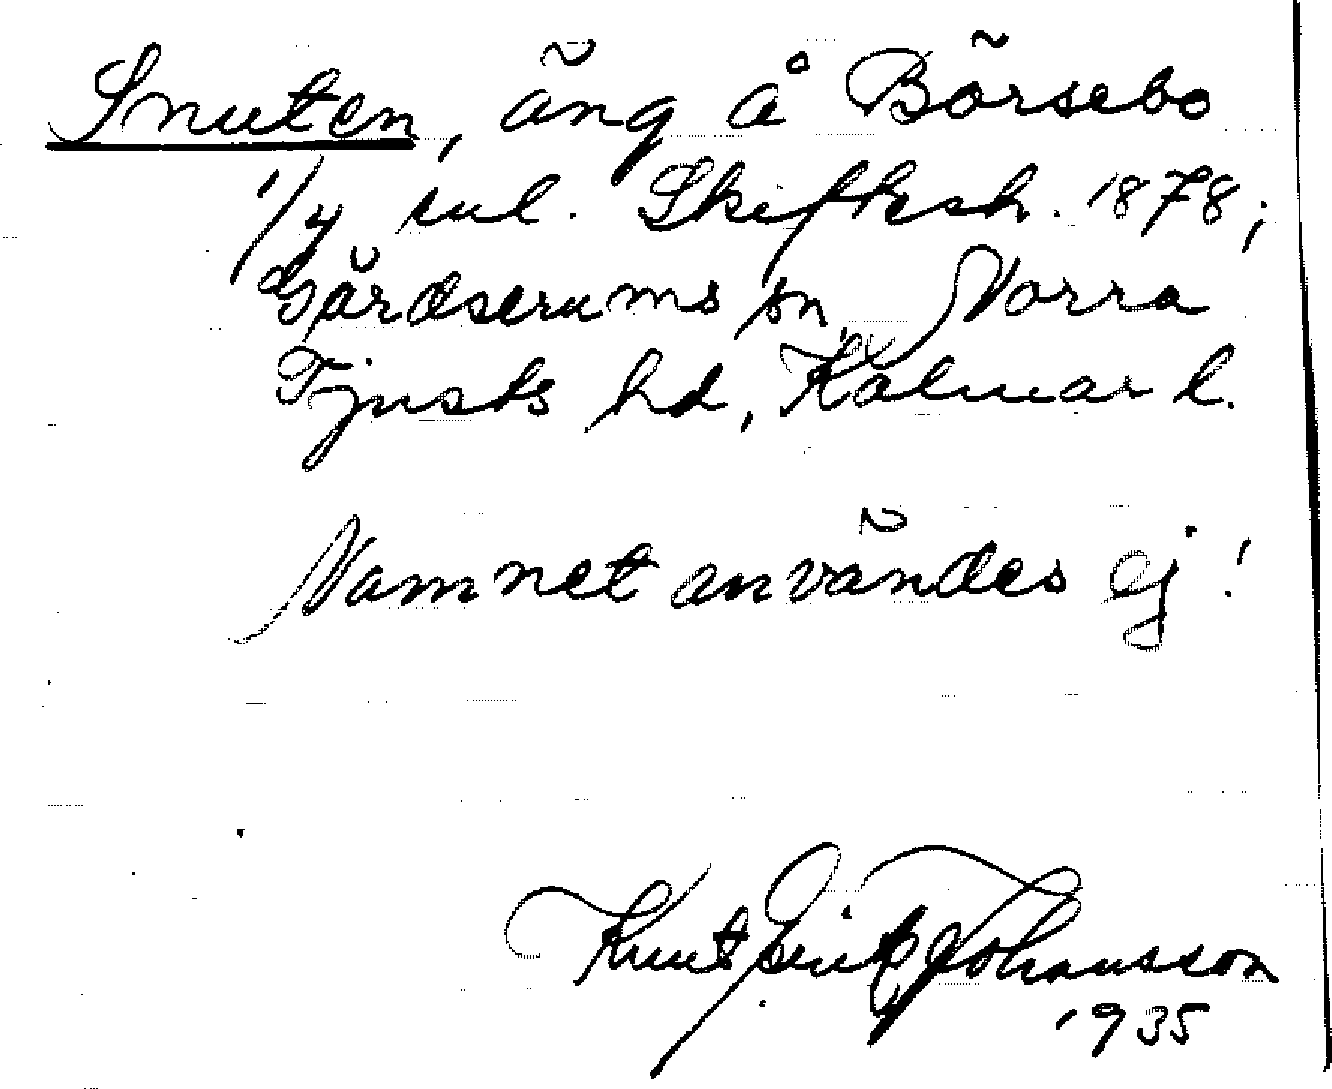 Snuten, äng å Börsebo
1/4 enl. Skiftesh. 1878;
Gärdserums sn, Norra
Tjusts hd, Kalmar l.
Namnet användes ej!
Knut Erik Johansson
1935